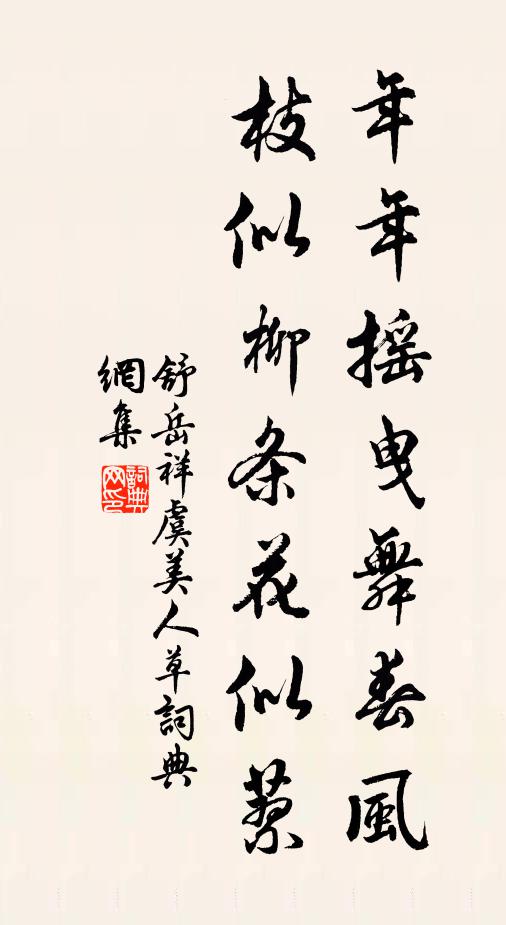 年年搖曳舞春風
枝似柳條花似蔾
舒岳祥虞美人草詞典
網集
詞典
网印